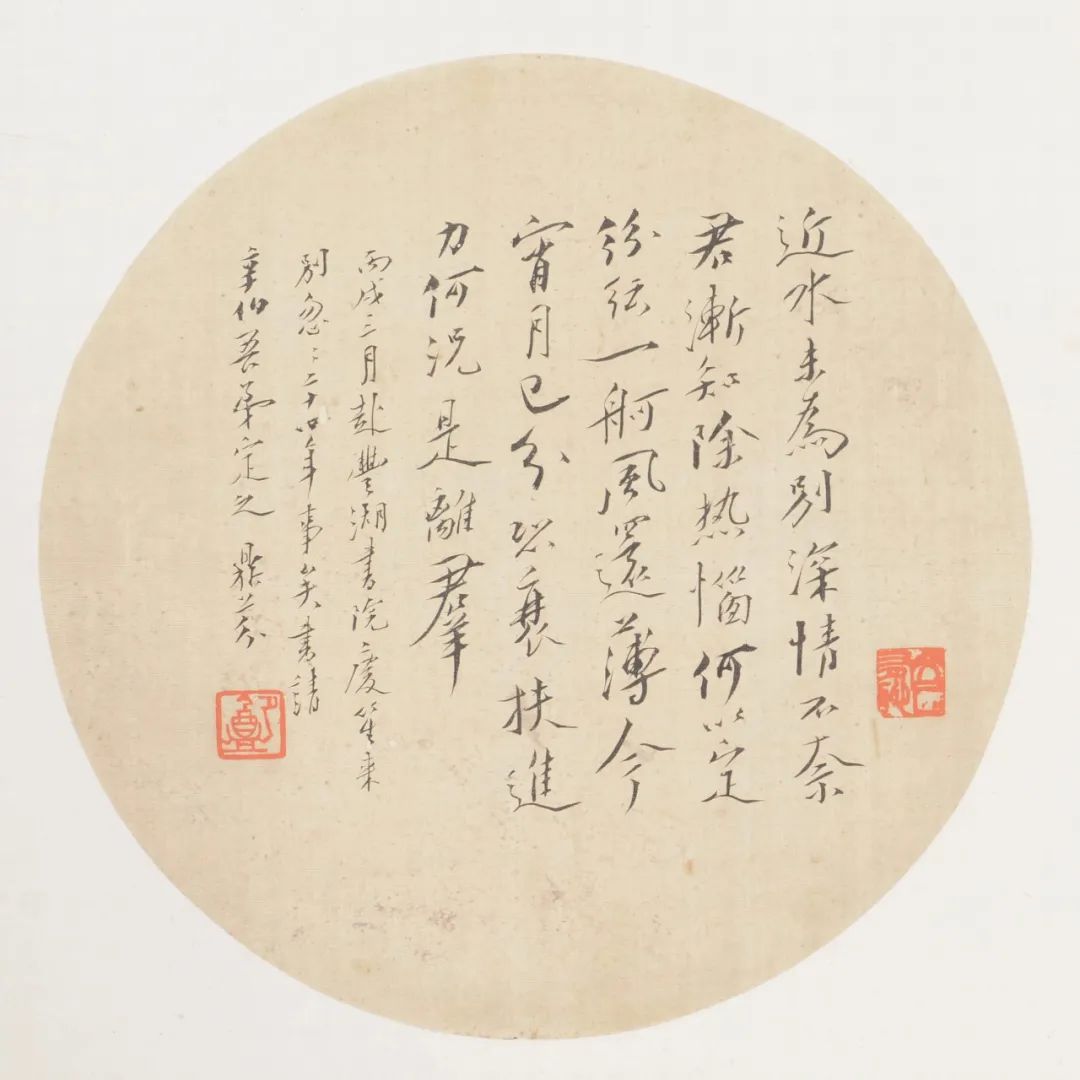 近水未為別深情不奈
君漸知除热惱何以定
紛紜一舸風還薄今
宵月已分恐衰扶進
力何況是離羣
丙戌三月赴豐湖書院慶笙来
別忽〻二十四年事矣書請
辛伯吾弟定之 鼎芬